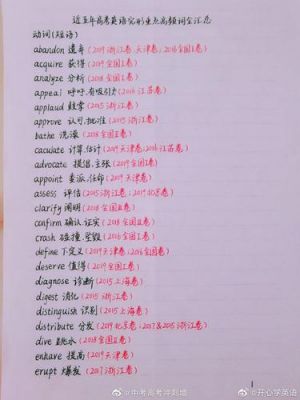 近五年高考英语完形重点高频词全汇总
动词(短语)
abandon 遗弃 (2019浙江卷、天津卷; 2016全国Ⅰ卷)
acquire 获得 (2019全国Ⅰ卷)
analyze 分析 (2018全国Ⅱ卷)
appeal 呼吁,有吸引力 (2016江苏卷)
applaud 鼓掌 (2015浙江卷)
approve 认可,批准 (2015浙江卷)
bathe 洗澡 (2018全国Ⅱ卷)
caculate 计算,估计 (2019天津卷; 2016江苏卷)
advocate 提倡,主张 (2019全国Ⅰ卷)
appoint 委派,任命 (2019天津卷)
assess 评估 (2015浙江卷; 2019北京卷)
clarify 阐明 (2018全国Ⅲ卷)
confirm 确认,证实 (2018全国Ⅱ卷)
crash 碰撞,坠毁 (2016全国Ⅰ卷)
define 下定义 (2019天津卷; 2016全国卷)
deserve 值得 (2019全国Ⅰ卷)
diagnose 诊断 (2015上海卷)
digest 消化 (2015浙江卷)
distinguish 识别 (2015上海卷)
distribute 分发 (2019北京卷; 2017&2015浙江卷)
dive 跳水 (2018全国Ⅱ卷)
enhance 提高 (2019天津卷)
erupt 爆发 (2017浙江卷)
1
@中考高考冲刺墙
@开心学英语